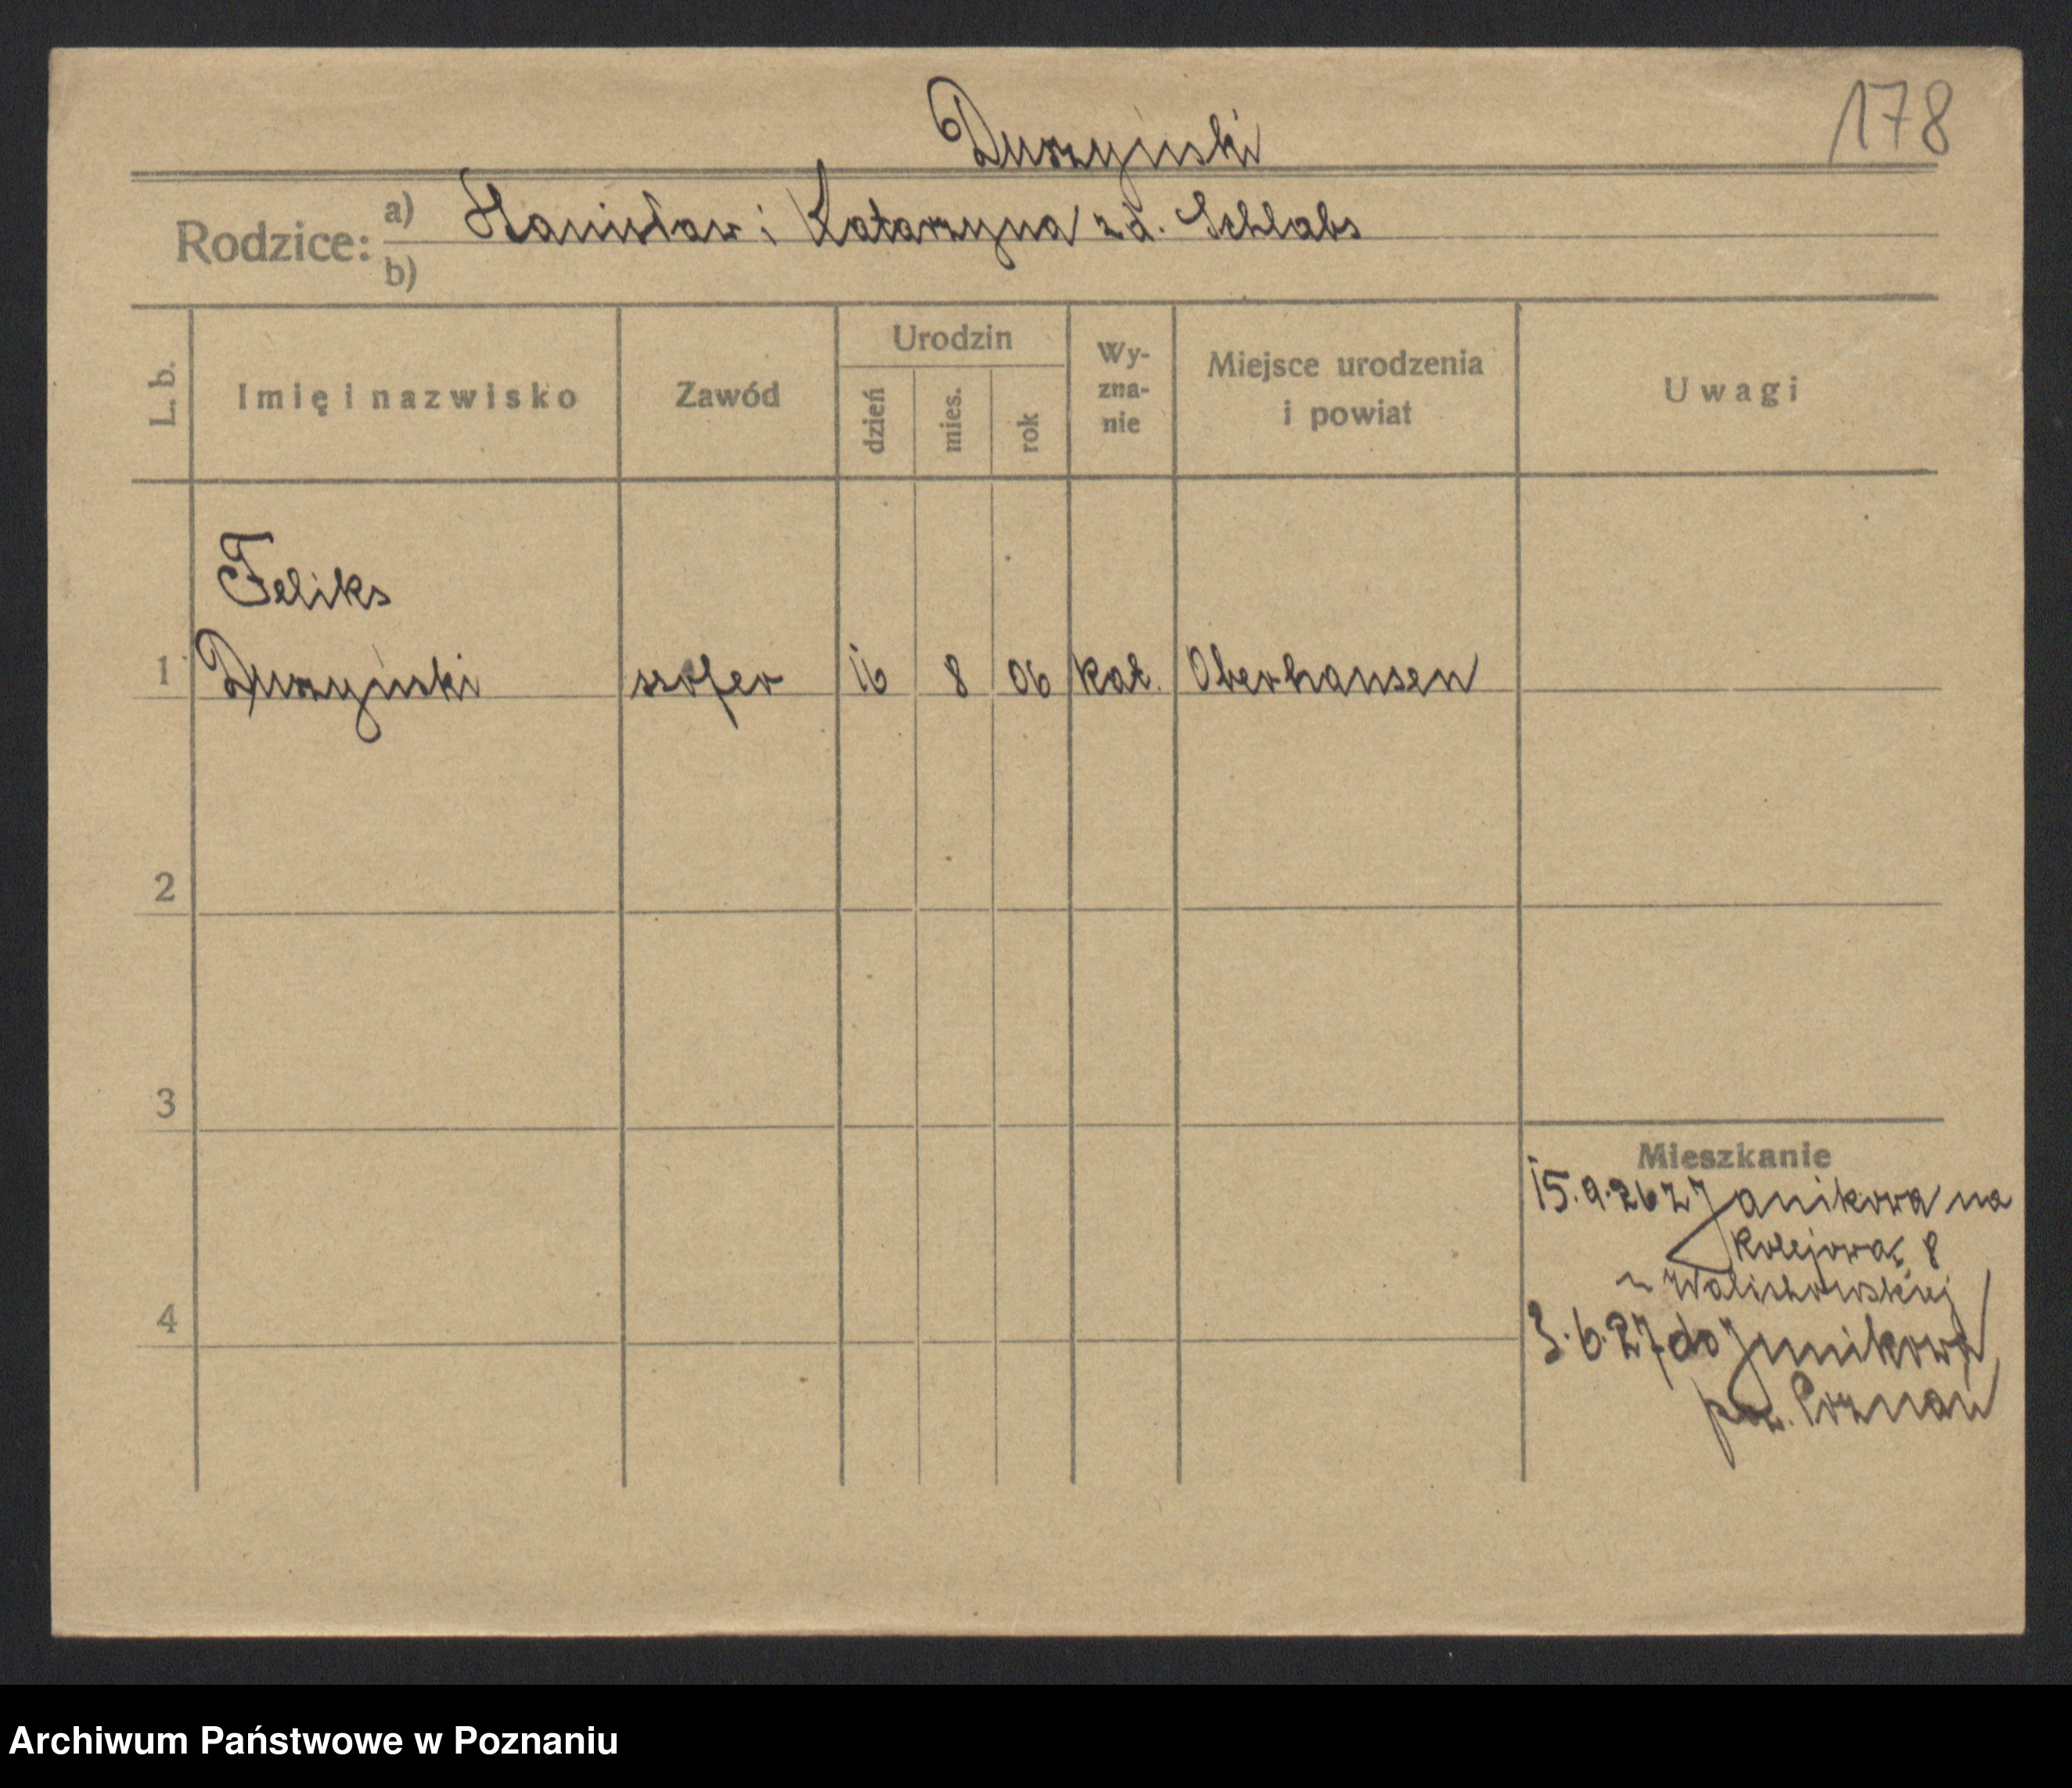 178
Duszyński
Rodzice: a) Stanisław i Katarzyna z d. Schlabs
b)
L. b.
Imię i nazwisko
Zawód
Urodzin
dzień
mies.
rok
Wy-
zna-
nie
Miejsce urodzenia
i powiat
Uwagi
Feliks
1 Duszyński szofer 16 8 06 kat. Oberhausen
2
3
4
Mieszkanie
15.9.26 z Janikowa na
Kolejowa 8
u Walichowskiej
3.6.27 do Junikowa
pow. Poznań
Archiwum Państwowe w Poznaniu